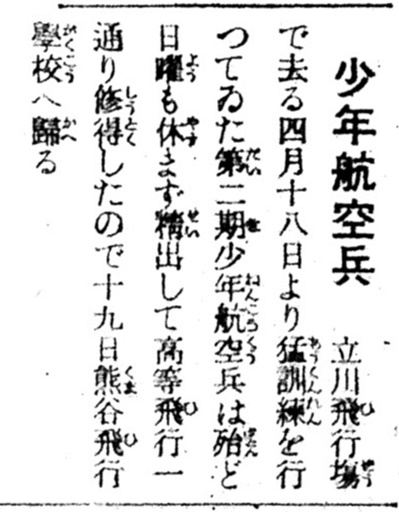 少年航空兵
立川飛行場
で去る四月十八日より猛訓練を行
つてゐた第二期少年航空兵は殆ど
日曜も休まず精出して高等飛行一
通り修得したので十九日熊谷飛行
學校へ歸る